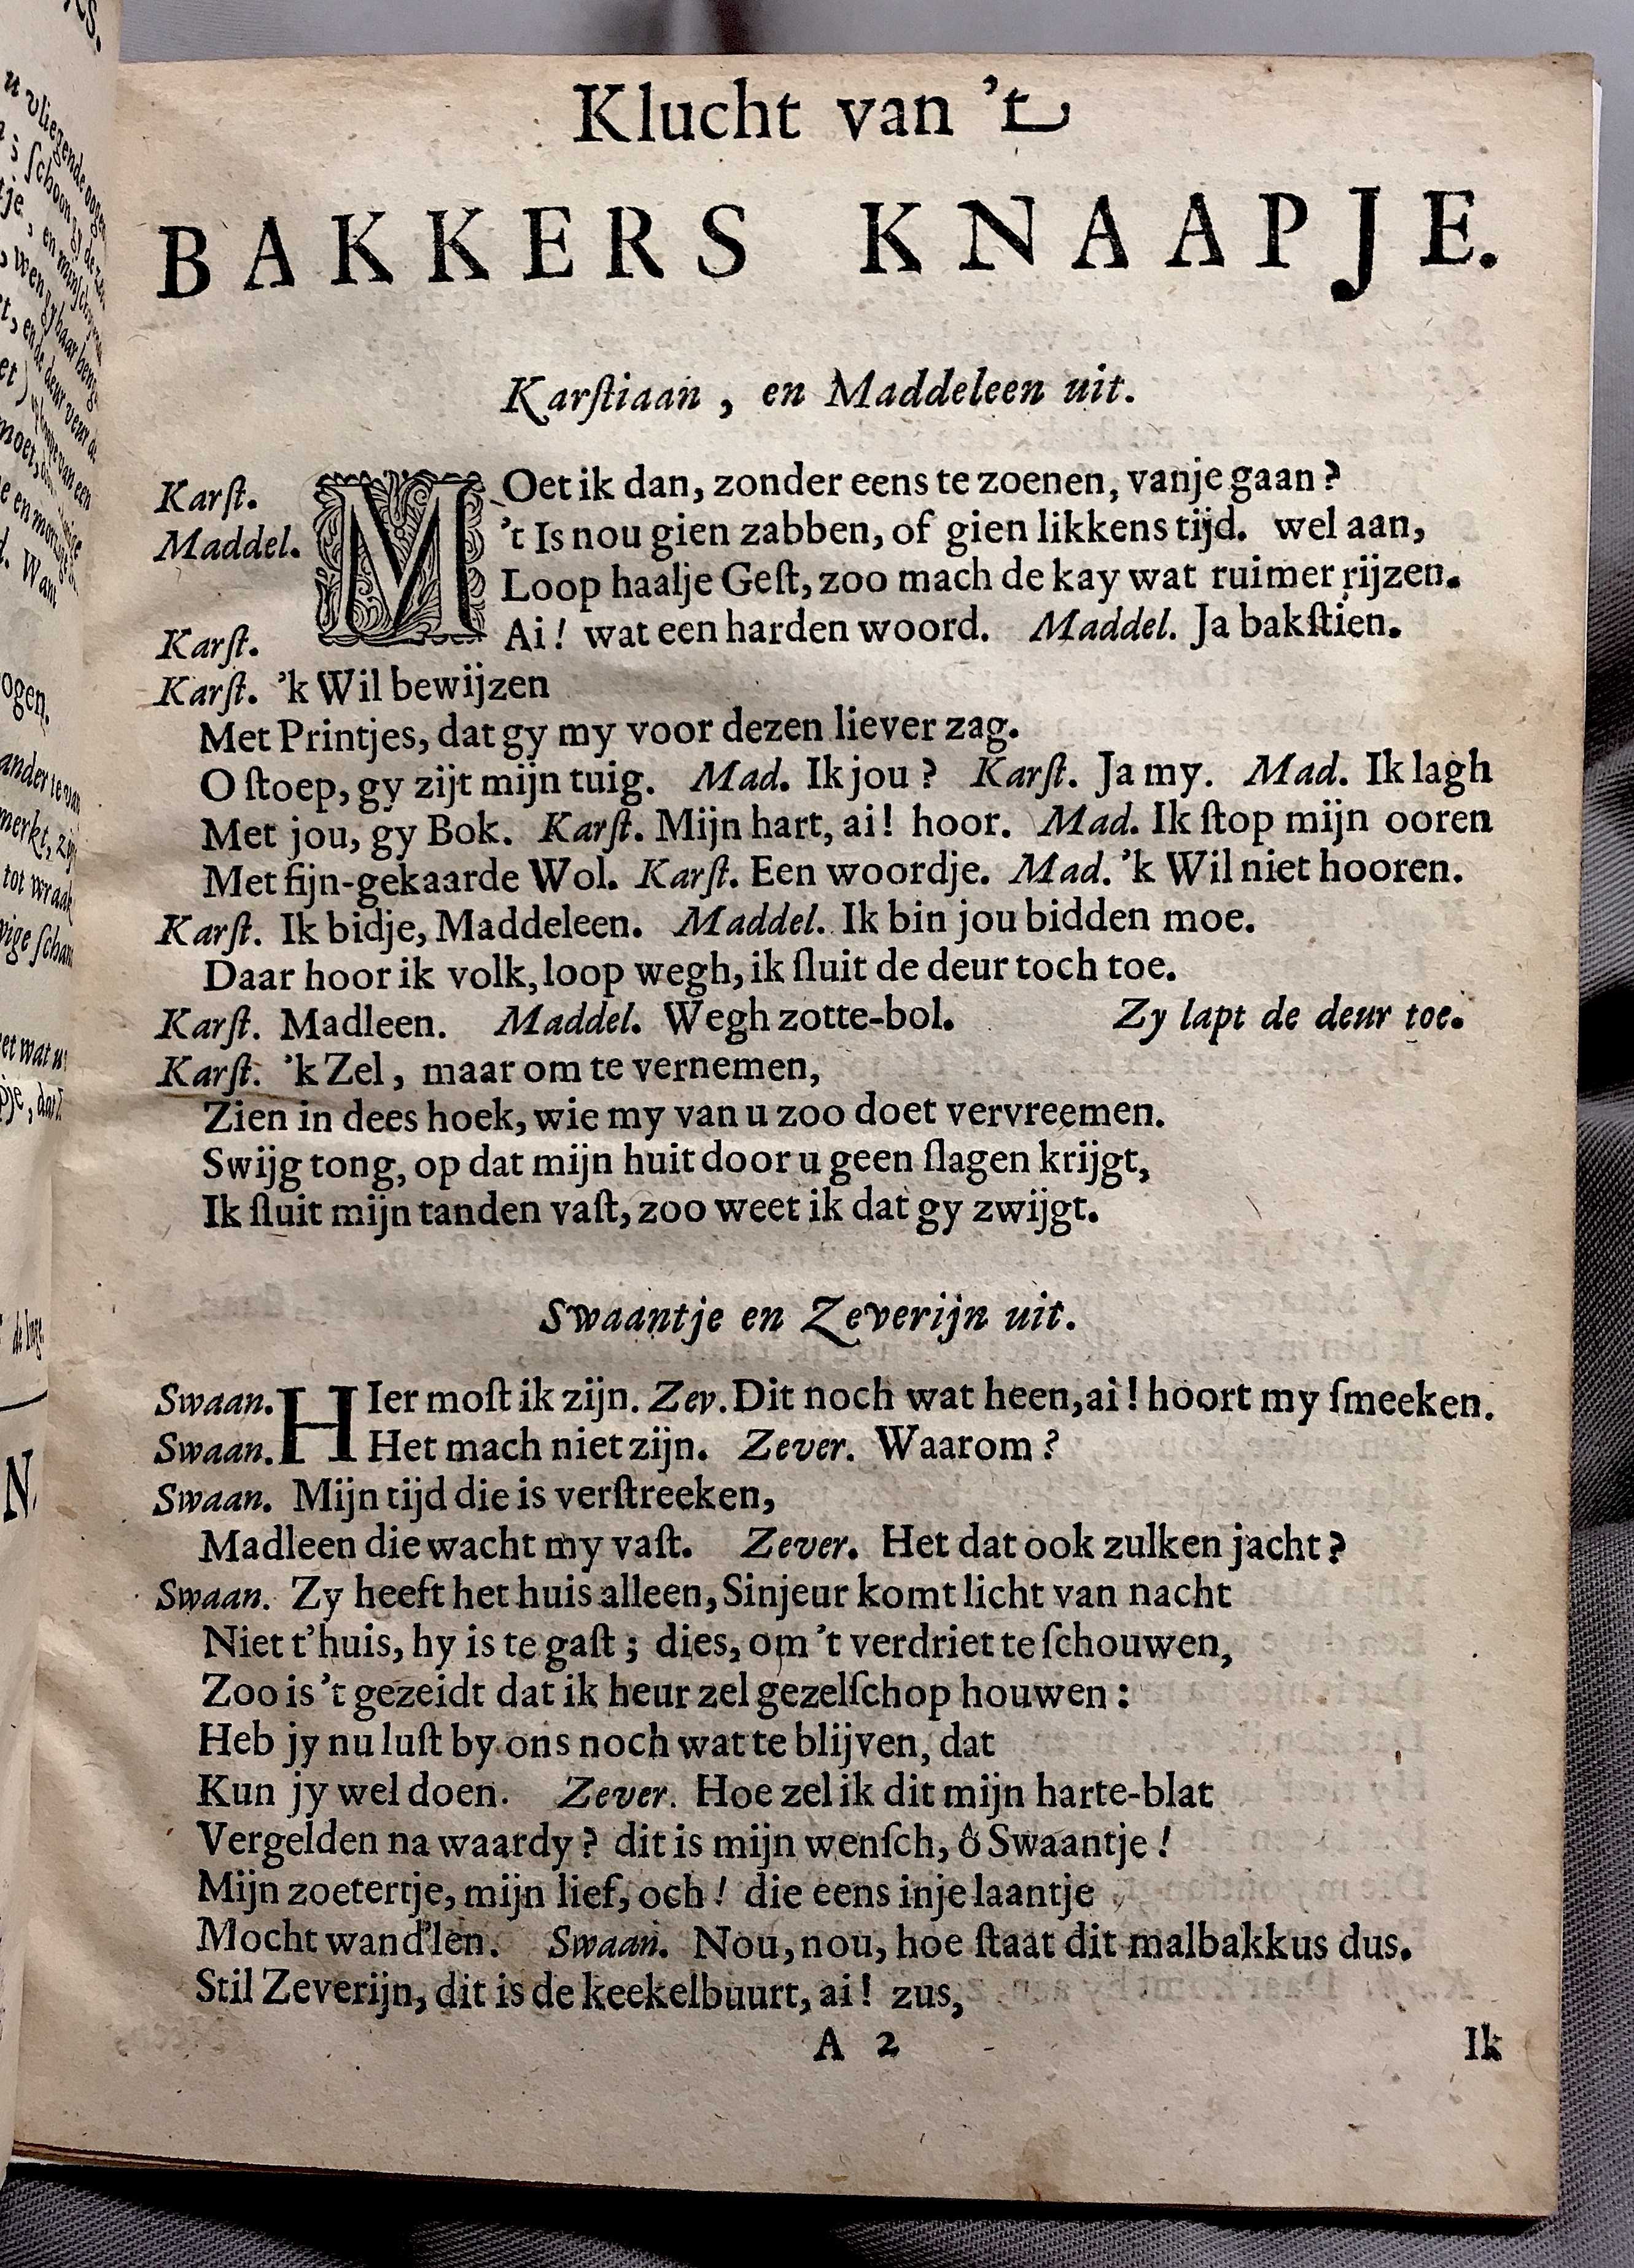 Klucht van 't
BAKKERS KNAAPJE.
Karſtiaan, en Maddeleen uit.
Karſt. MOet ik dan, zonder eens te zoenen, vanje gaan?
Maddel. 't Is nou gien zabben, of gien likkens tijd. wel aan,
Loop haalje Geſt, zoo mach de kay wat ruimer rijzen.
Karſt. Ai! wat een harden woord. Maddel. Ja bakſtien.
Karſt. 'k Wil bewijzen
Met Printjes, dat gy my voor dezen liever zag.
O ſtoep, gy zijt mijn tuig. Mad. Ik jou? Karſt. Ja my. Mad. Ik lagh
Met jou, gy Bok. Karſt. Mijn hart, ai! hoor. Mad. Ik ſtop mijn ooren
Met fijn-gekaarde Wol. Karſt. Een woordje. Mad. 'k Wil niet hooren.
Karſt. Ik bidje, Maddeleen. Maddel. Ik bin jou bidden moe.
Daar hoor ik volk, loop wegh, ik ſluit de deur toch toe.
Karſt. Madleen. Maddel. Wegh zotte-bol. Zy lapt de deur toe.
Karſt. 'k Zel, maar om te vernemen,
Zien in dees hoek, wie my van u zoo doet vervreemen.
Swijg tong, op dat mijn huit door u geen ſlagen krijgt,
Ik ſluit mijn tanden vaſt, zoo weet ik dat gy zwijgt.
Swaantje en Zeverijn uit.
Swaan. HIer moſt ik zijn. Zev. Dit noch wat heen, ai! hoort my ſmeeken.
Swaan. Het mach niet zijn. Zever. Waarom?
Swaan. Mijn tijd die is verſtreeken,
Madleen die wacht my vaſt. Zever. Het dat ook zulken jacht?
Swaan. Zy heeft het huis alleen, Sinjeur komt licht van nacht
Niet t'huis, hy is te gaſt; dies, om 't verdriet te ſchouwen,
Zoo is 't gezeidt dat ik heur zel gezelſchop houwen:
Heb jy nu luſt by ons noch wat te blijven, dat
Kun jy wel doen. Zever. Hoe zel ik dit mijn harte-blat
Vergelden na waardy? dit is mijn wenſch, ô Swaantje!
Mijn zoetertje, mijn lief, och! die eens inje laantje
Mocht wand'len. Swaan. Nou, nou, hoe ſtaat dit malbakkus dus.
Stil Zeverijn, dit is de keekelbuurt, ai! zus,
A 2 Ik